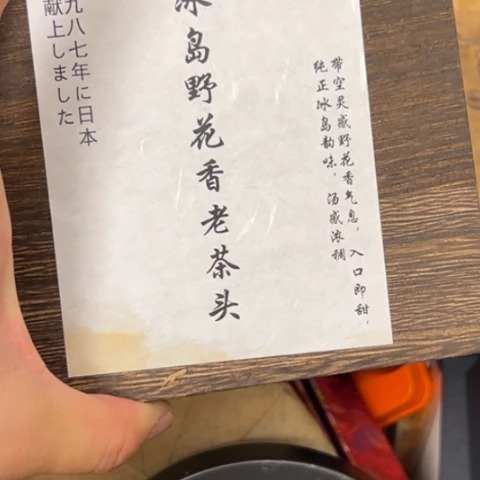 带空灵感野花香气息，入口即甜，
纯正冰岛韵味，汤感浓稠
冰岛野花香老茶头
九八七年に日本
献上しました